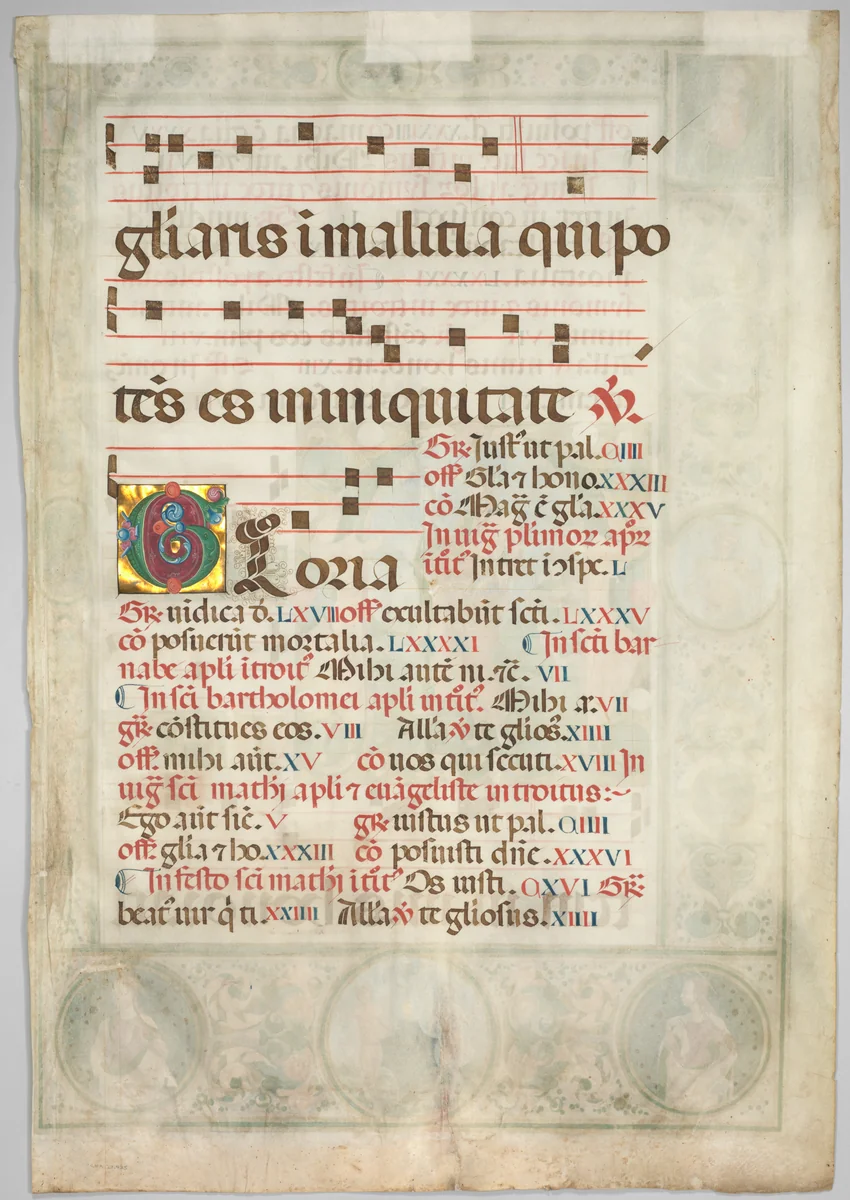 gliaris i malitia qui po
tēs es in iniquitate ℣.
Gr. Just' ut pal. CIIII
off Gl'a ⁊ hono. XXXIII
cō Mag̃ ē gl'a. XXXV
In uig̃ plimor apr̃
itit' Intret i ɔspc. L
Gloria
Gr. uīdica d. LXVIII off exultabūt scti. LXXXV
cō posuerūt mortalia. LXXXXI In scti bar
nabe apli itroit' Mihi autē ni. ⁊c̃. VII
In sci bartholomei apli intit'. Mihi a. VII
gr. cōstitues eos. VIII All'a ℣ te glios. XIIII
off. mihi aūt. XV cō uos qui secuti. XVIII In
uig̃ sci mathi apli ⁊ euāgeliste introitus:~
Ego aūt sic̄. V gr. iustus ut pal. CIIII
off. glia ⁊ ho. XXXIII cō posuisti dn̄e. XXXVI
In festo sci mathi itit' Os iusti. CXVI Gr.
beat' uir q̄ ti. XXIIII All'a ℣ te gliosus. XIIII